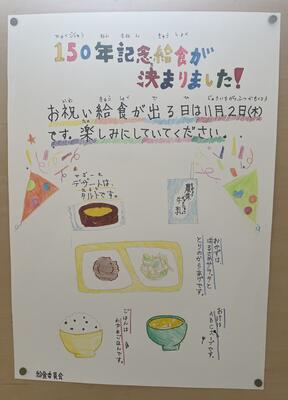 150年記念給食が
決まりました!
お祝い給食が出る日は11月2日(木)
です。楽しみにしていてください。
デザートは、
タルトです。
牛乳
おかずは、
とりのからあげです。
ごはんは
わかめごはんです。
ABCスープです。
給食委員会